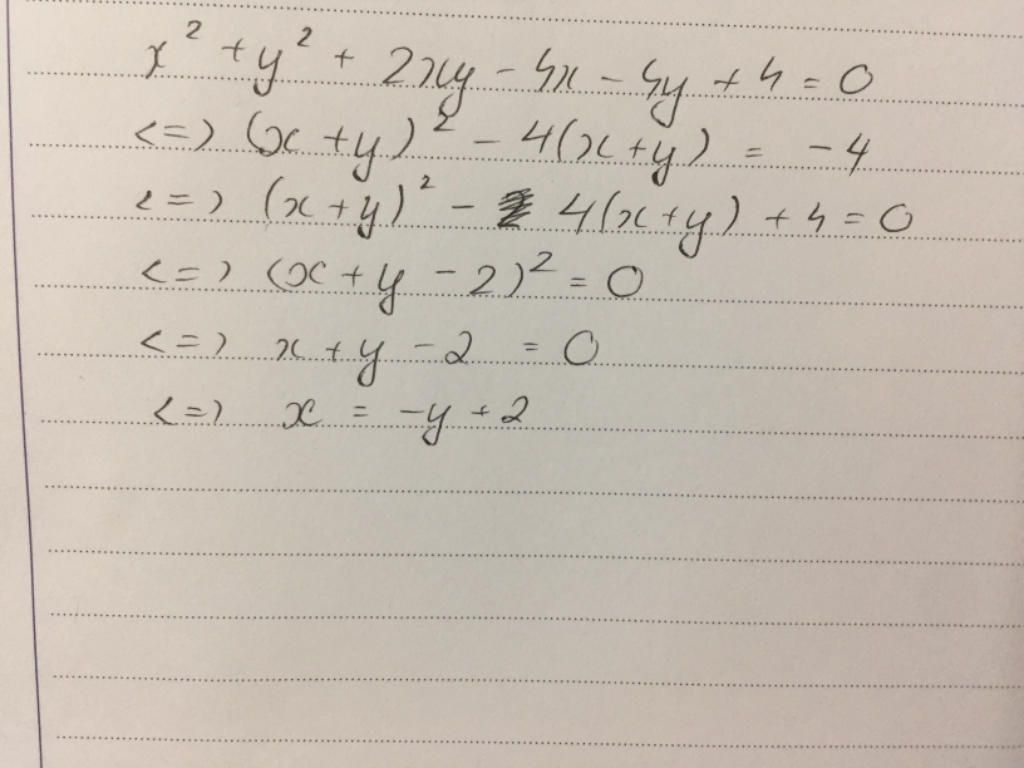 x² + y² + 2xy - 4x - 4y + 4 = 0
<=> (x + y)² - 4(x + y) = -4
<=> (x + y)² - 4(x + y) + 4 = 0
<=> (x + y - 2)² = 0
<=> x + y - 2 = 0
<=> x = -y + 2